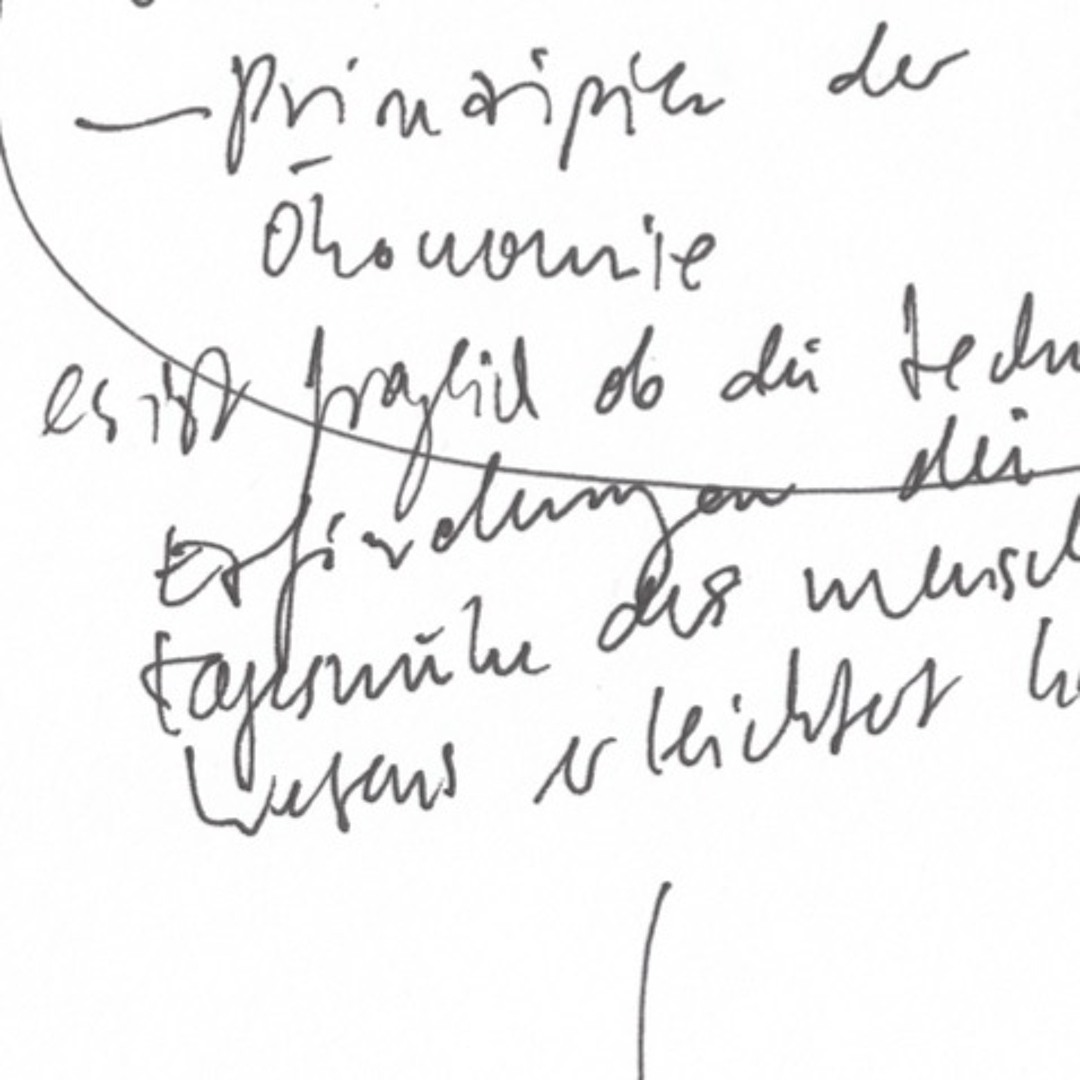 — Prinzipien der
Ökonomie
es ist fraglich ob die techn
Erfindungen die
tagesmühe des mensch
Wesens erleichtert ha